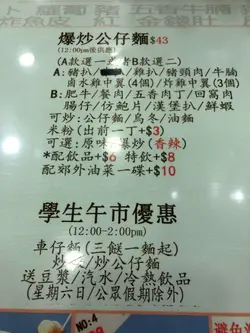 卜 蘿蔔 豬 五香牛腩
炸魚皮 紅 金錢肚
爆炒公仔麵$43
(12:00pm後供應)
(A款選一 者B款選二)
A:豬扒/ 雞扒/豬頸肉/牛腩
鹵水雞中翼(4個)/炸雞中翼(3個)
B:肥牛/餐肉/五香肉丁/回窩肉
腸仔/仿鮑片/漢堡扒/鮮蝦
可炒:公仔麵/烏冬/油麵
米粉(出前一丁+$3)
可選:原味 爆炒(香辣)
*配飲品+$6 特飲+$8
配郊外油菜一碟+$10
學生午市優惠
(12:00-2:00pm)
車仔麵(三餸一麵起)
炒 /炒公仔麵
送豆漿/汽水/冷熱飲品
(星期六日/公眾假期除外)
NO.4
避免